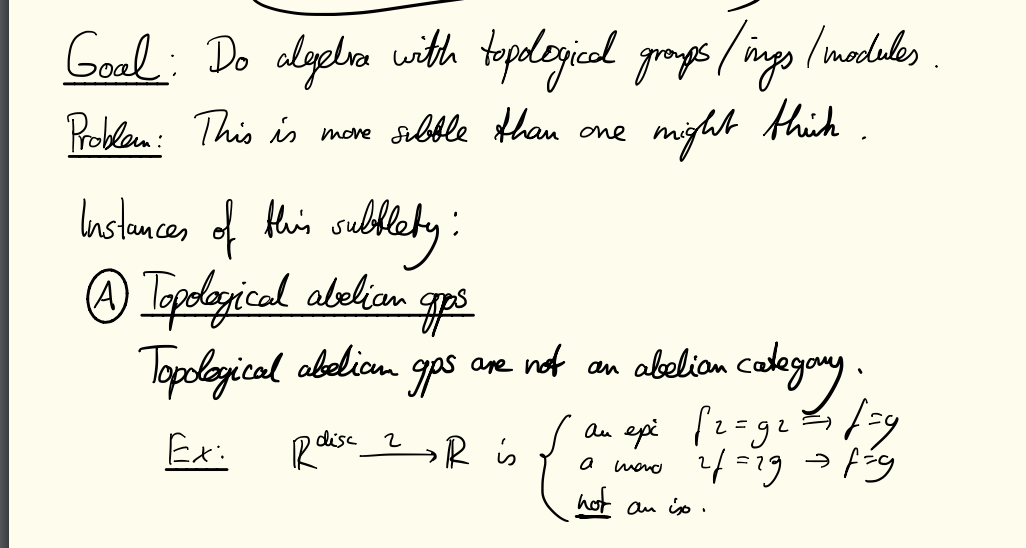 Goal: Do algebra with topological groups/rings/modules.
Problem: This is more subtle than one might think.
Instances of this subtlety:
Ⓐ Topological abelian gps
Topological abelian gps are not an abelian category.
Ex: ℝ^disc —ι→ ℝ is { an epi fι = gι ⇒ f=g
a mono ιf = ιg → f=g
not an iso.